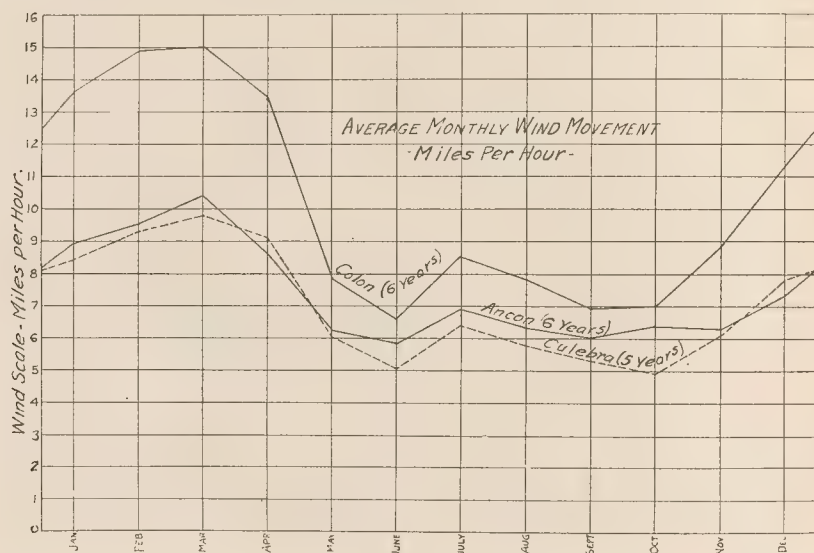 16
15
14
13
12
11
10
9
8
7
6
5
4
3
2
1
0
Wind Scale - Miles per Hour.
AVERAGE MONTHLY WIND MOVEMENT
- Miles Per Hour -
Colon (6 Years)
Ancon (6 Years)
Culebra (5 Years)
JAN
FEB
MAR
APR
MAY
JUNE
JULY
AUG
SEPT
OCT
NOV